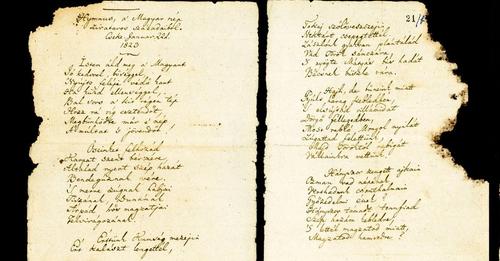 Hymnus, a' Magyar nép
zivataros századaiból.
Cseke, Januar. 22d.
1823
Isten áldd meg a' Magyart
Jó kedvvel, bőséggel
Nyújts feléje védő kart
Ha küzd ellenséggel;
Bal sors a' kit régen tép
Hozz rá víg esztendőt
Megbünhödte már a' nép
A' multat 's jövendőt!
Őseinket felhozád
Kárpát szent bérczére,
Általad nyert szép hazát
Bendegúznak vére.
'S merre zúgnak habjai
Tiszának, Dunának,
Árpád hős magzatjai
Felvirágozának.
Értünk Kunság mezején
Ért kalászt lengettél,
21
Tokaj szőlővesszejin
Nektárt csepegtettél.
Zászlónk gyakran plántálád
Vad Török sánczára,
'S nyögte Mátyás' bús hadát
Bécsnek büszke vára.
Hajh, de bűneink miatt
Gyúlt harag kebledben,
'S elsujtád villámidat
Dörgő fellegedben,
Most rabló Mongol nyilát
Zúgattad felettünk,
Majd Töröktől rabigát
Vállainkra vettünk.
Hányszor zengett ajkain
Ozman vad népének
Vert hadunk csonthalmain
Győzedelmi ének!
Hányszor támadt tenfiad
Szép hazám kebledre,
'S lettél magzatod miatt,
Magzatod hamvedre?